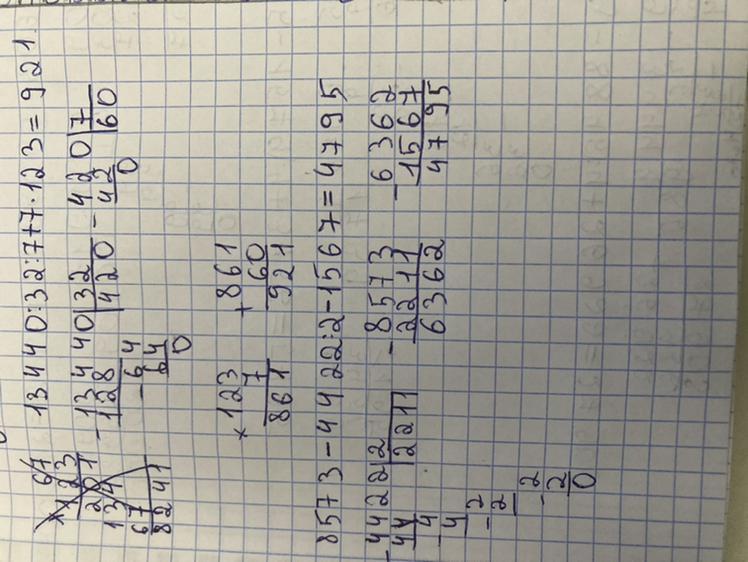 13440:32:7+7·123=921
67
×123
201
134
67
8241
-13440|32
128 |420
-64
64
0
-420|7
42 |60
0
×123
7
861
+861
60
921
8573-4422:2-1567=4795
-4422|2
44 |2211
-4
4
-2
2
-2
2
0
-8573
2211
6362
-6362
1567
4795